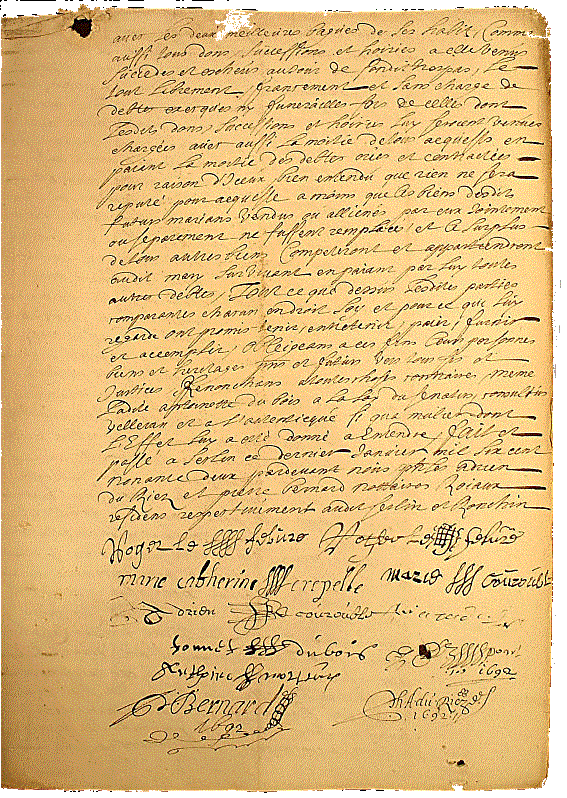 avec les deux meilleures bagues de ses habit, Comme
aussi tous dons, successions et hoiries a elle venus
succedes et escheus au jour de son dit trespas, Le
tout Librement, franchement et sans charge de
debtes exorques ny funerailles fors de celle dont
Lesdits dons, successions et hoiries Luy seront venues
chargees avec aussi La moitié de tous acquests en
paiant La moitié des debtes crées et contractées
pour raison d'Iceux bien entendu que rien ne sera
reputé pour acqueste a moins que Les biens desdits
futurs marians vendus ou allienés par eux Jointement
ou separement ne fussent remplacés, et Le surplus
de tous autres biens Competeront et appartiendront
audit mary survivant en paiant par Luy toutes
autres debtes, Tout ce que dessus Lesdites parties
comparantes chacun endroit soy et pour ce que Luy
regarde ont promis tenir, entretenir, paier, furnir
et accomplir, obligeans a ces fins Leurs personnes
biens et heritages pns et futurs vers tous srs et
Justices Renonchans a toutes choses contraires, meme
Ladte antoinette du bois a La Loy du senatus, consultus
velleian et a L'autenticque si qua mulier dont
L'Effet Luy a esté donné a Entendre, fait et
passé a Serlin ce dernier Janvier mil six cent
nonante deux pardevant nous phles adrien
du Riez et pierre bernard nottaires Roiaux
residens respectivement audit Serlin et Ronchin
Roger le febure le febure
marie catherine crepelle marie Couroubl
Adrien Couroubl
dubois
1692
Bernard
1692
1692